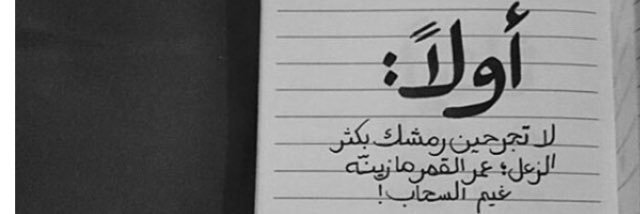 أولاً:
لا تجرحين رمشك بكثر
الزعل؛ عمر القمر مازينّه
غيم السحاب!